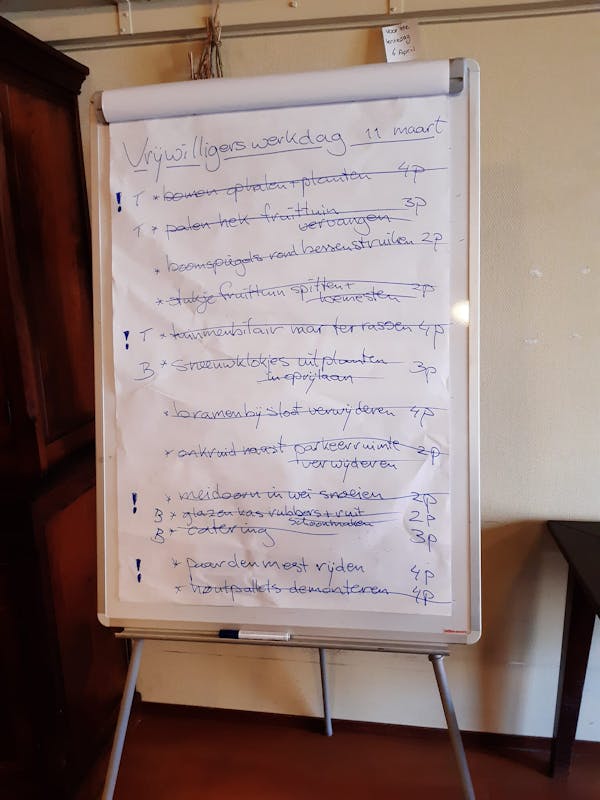 voor de
6 April
Vrijwilligerswerkdag 11 maart
! T * bomen ophalen + planten 4p
T * palen hek fruittuin 3p
vervangen
* boomspiegels rond bessenstruiken 2p
* stukje fruittuin spitten + 2p
bemesten
! T * tuinmeubilair naar terrassen 4p
B * sneeuwklokjes uitplanten 3p
in oprijlaan
* bramen bij sloot verwijderen 4p
* onkruid naast parkeerruimte 2p
verwijderen
! * meidoorn in wei snoeien 2p
B * glazen kas rubbers + ruit 2p
schoonmaken
B * catering 3p
! * paardenmest rijden 4p
* houtpallets demonteren 4p